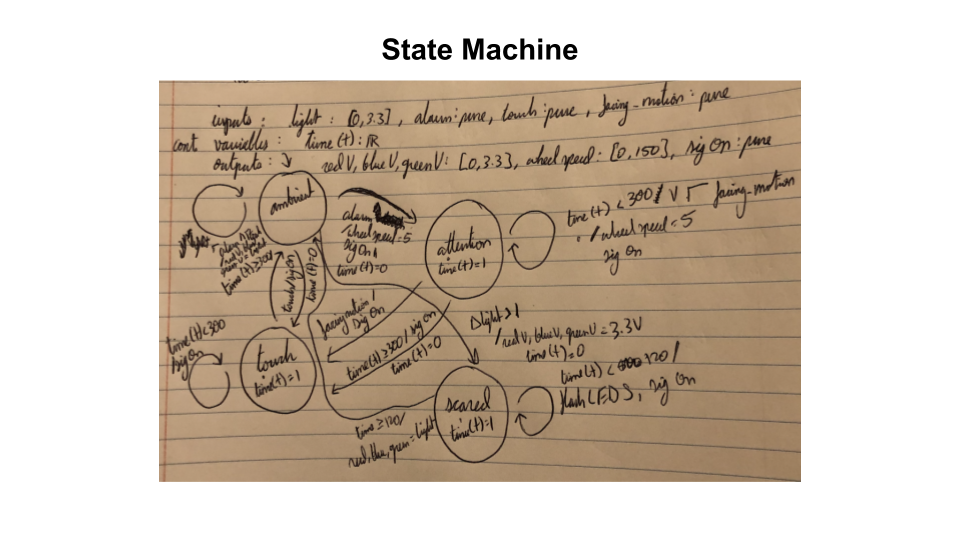 State Machine
inputs : light : [0,3.3], alarm : pure, touch : pure, facing-motion : pure
cont variables : time (t) : ℝ
outputs : red V, blue V, green V : [0,3.3], wheel speed : [0,150], sig On : pure
ambient
alarm
/wheel speed = 5
sig On,
time(t)=0
attention
ṫime(t)=1
time(t) < 300 / V ┌ facing-motion
/wheel speed = 5
sig On
time(t) ≥ 300
touch/sig On
time(t)=0
time(t)<300
sig On
touch
ṫime(t)=1
facing motion /
sig On
time(t) ≥ 300 / sig On
time(t)=0
Δlight > 1
/red V, blue V, green V = 3.3V
time(t)=0
time(t) < 120 /
flash LEDS, sig On
scared
ṫime(t)=1
time ≥ 120/
red, blue, green = light